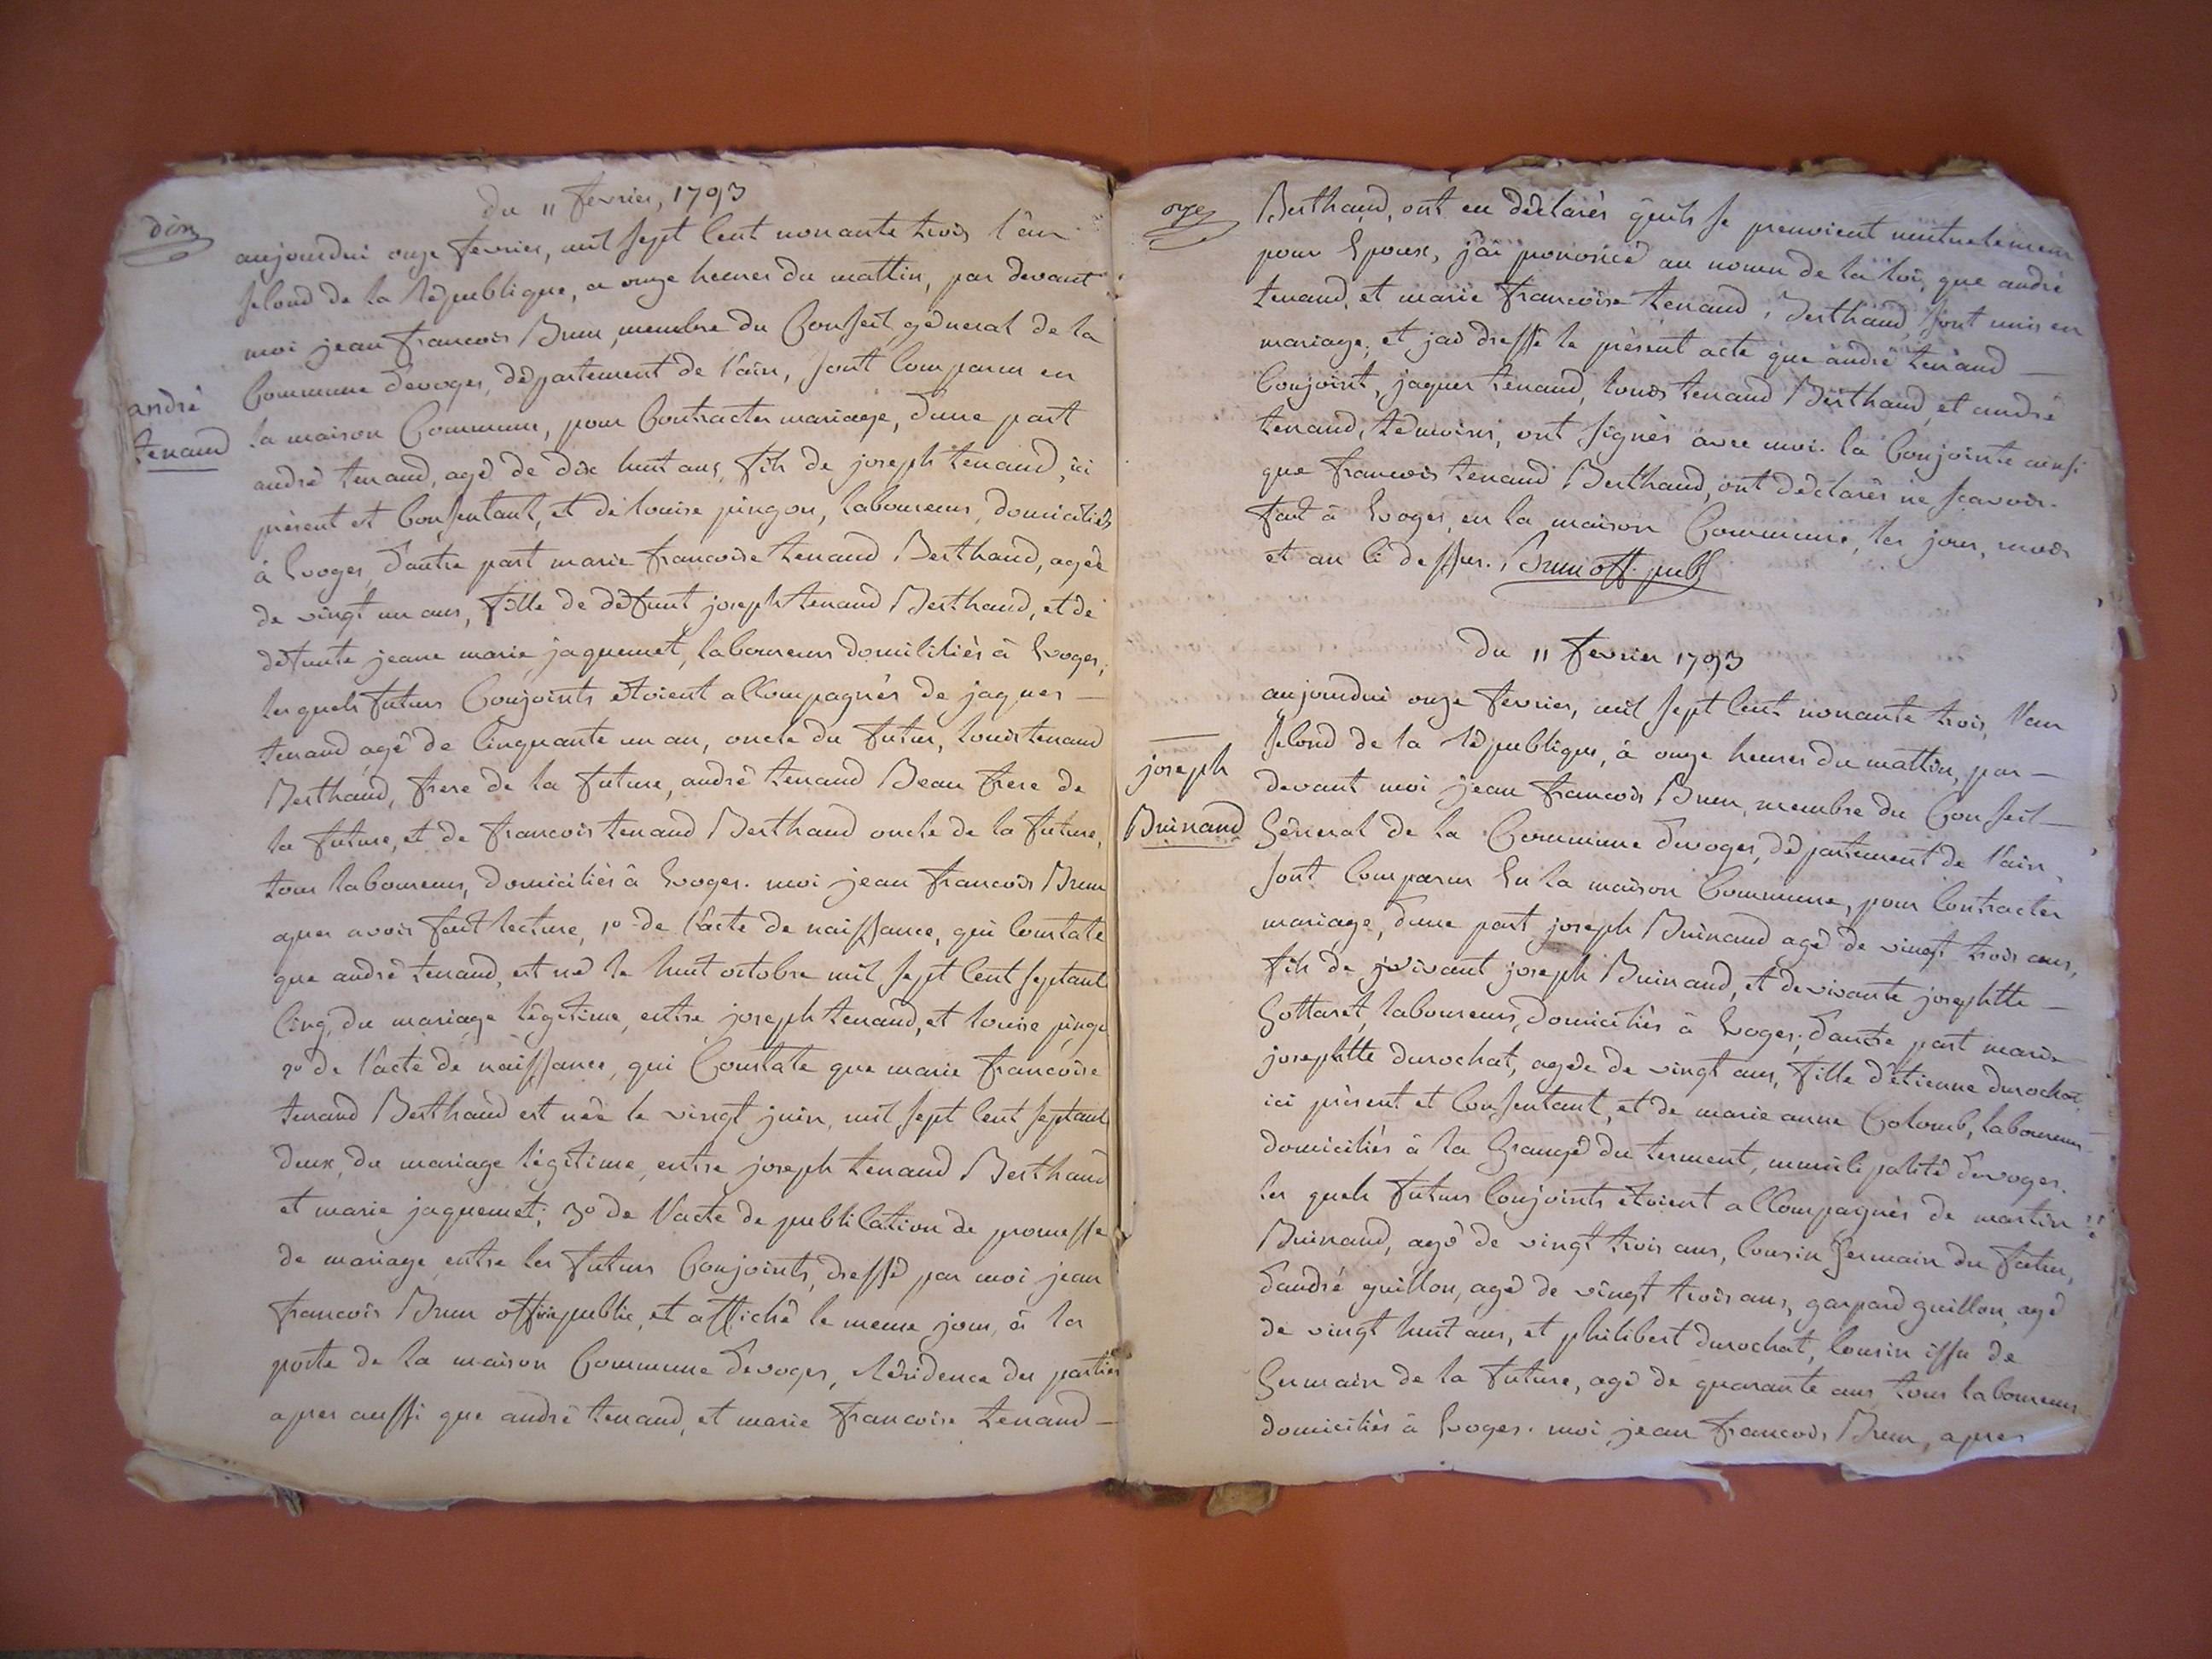 du 11 fevrier, 1793
dix
aujourdui onze fevrier, mil sept cent nonante trois l'an
second de la république, a onze heures du mattin, par devant
moi jean francois Brun, membre du Conseil général de la
Commune devoges, département de l'ain, sont Comparus en
andré
tenand
la maison Commune, pour Contracter mariage, d'une part
andré tenand, agé de dix huit ans, fils de joseph tenand, ici
présent et Consentant, et de louise pingon, laboureurs, domiciliés
à Evoges, d'autre part marie francoise tenand Berthand, agée
de vingt un ans, fille de défunt joseph tenand Berthand, et de
défunte jeane marie jaquemet, laboureurs domiciliés à Evoges;
lesquels futurs Conjoints étoient accompagnés de jaques –
tenand agé de Cinquante un an, oncle du futur, louis tenand
Berthand, frere de la future, andré tenand Beau frere de
la future, et de francois tenand Berthand oncle de la future,
tous laboureurs, domiciliés à Evoges. moi jean francois Brun
apres avoir fait lecture, 1º de l'acte de naissance, qui constate
que andré tenand, est né le huit octobre mil sept cent septante
Cinq, du mariage légitime, entre joseph tenand, et louise pingo
2º de l'acte de naissance, qui Constate que marie francoise
tenand Berthand est née le vingt juin, mil sept cent septant
deux, du mariage légitime, entre joseph tenand Berthand
et marie jaquemet; 3º de l'acte de publication de promesse
de mariage entre les futurs Conjoints, dressé par moi jean
francois Brun officie public, et affiché le meme jour, à la
porte de la maison Commune devoges, résidence des parties
apres aussi que andré tenand, et marie francoise tenand –
onze
Berthand, ont eu déclarés quils se prenoient mutuelement
pour Epoux, j'ai prononcé au nomn de la loi, que andré
tenand, et marie francoise tenand, Berthand, sont unis en
mariage; et jai dressé le présent acte que andré tenand –
Conjoint, jaques tenand, louis tenand Berthand, et andré
tenand, témoins, ont signés avec moi. la Conjointe ainsi
que francois tenand Berthand, ont déclarés ne scavoir.
fait à Evoges, en la maison Commune, les jour, mois
et an ci dessus. Brun off. publ
du 11 fevrier 1793
aujourdui onze fevrier, mil sept cent nonante trois, l'an
second de la république, à onze heures du mattin, par –
joseph
Buinand
devant moi jean francois Brun, membre du Conseil –
Général de la Commune devoges, département de l'ain,
sont Comparus En la maison Commune, pour Contracter
mariage, d'une part joseph Buinand agé de vingt trois ans,
fils de vivant joseph Buinand, et de vivante josephtte –
Gottaret, laboureurs, domiciliés à Evoges; d'autre part marie
josephtte durochat, agée de vingt ans, fille d'étienne durochat
ici présent et Consentant, et de marie anne Colomb, laboureurs
domiciliés à la Grange du terment, municipalité devoges.
les quels futurs Conjoints étoient accompagnés de martin
Buinand, agé de vingt trois ans, cousin Germain du futur,
d'andré guillon, agé de vingt trois ans, gaspard guillon, agé
de vingt huit ans, et philibert durochat, cousin issu de
Germain de la future, agé de quarante ans, tous laboureurs
domiciliés à Evoges. moi jean francois Brun, apres